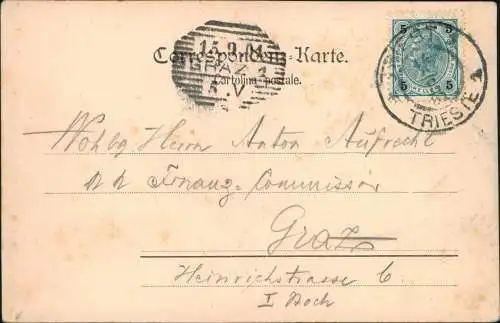 Correspondenz-Karte.
Cartolina postale.
GRAZ 1
V
5 5
5 5
TRIESTE
Wohlg Herrn Anton Aufrecht
Finanz-Commissär
Graz
Heinrichstrasse 6
I Stock